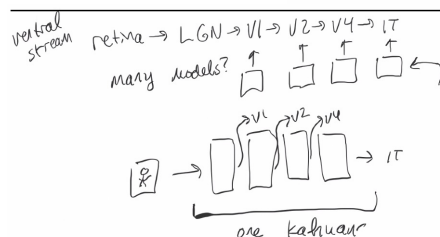 ventral stream
retina → LGN → V1 → V2 → V4 → IT
many models?
V1 V2 V4
→ IT
one